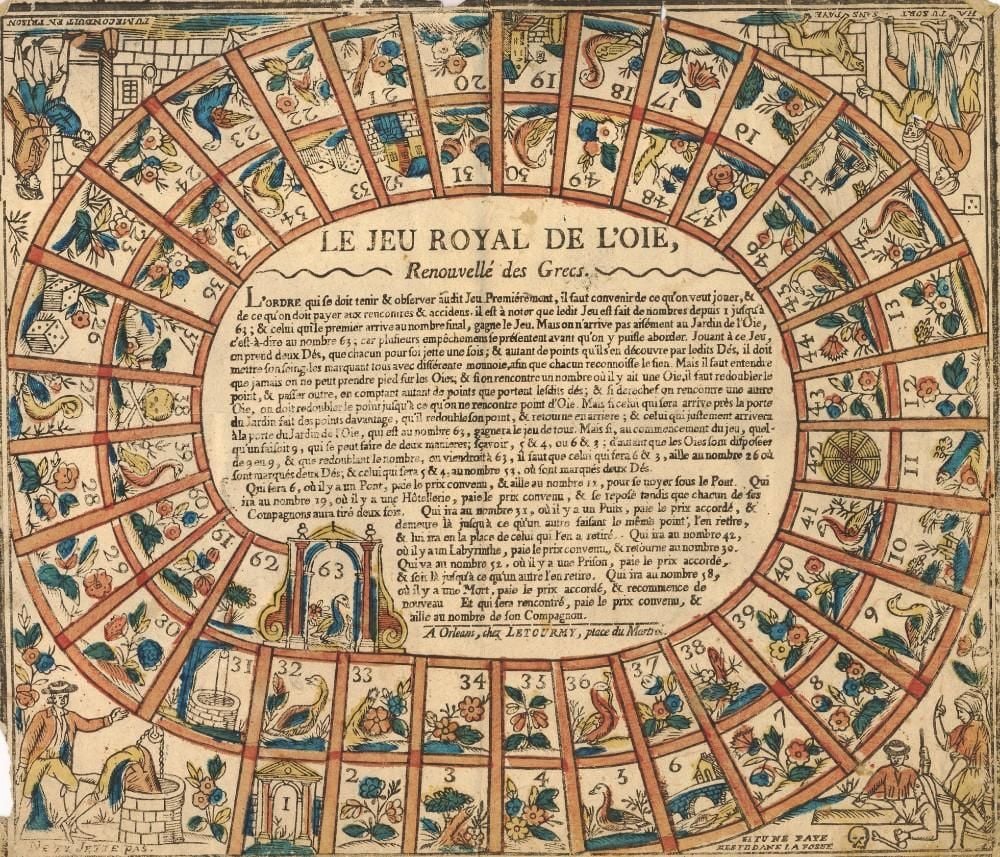 TU ME CONDUIT EN PRISON
HA TU SORT
SANS PAYE
LE JEU ROYAL DE L'OIE,
Renouvellé des Grecs.
L'ORDRE qui se doit tenir & observer audit Jeu Premiérement, il faut convenir de ce qu'on veut jouer, &
de ce qu'on doit payer aux rencontres & accidens. il est à noter que ledit Jeu est fait de nombres depuis 1 jusqu'à
63; & celui qui le premier arrive au nombre final, gagne le Jeu. Mais on n'arrive pas aisément au Jardin de l'Oie,
c'est-à-dire au nombre 63; car plusieurs empêchemens se présentent avant qu'on y puisse aborder. Jouant à ce Jeu,
on prend deux Dés, que chacun pour soi jette une fois; & autant de points qu'ils en découvre par lesdits Dés, il doit
mettre son seing, les marquant tous avec différente monnoie, afin que chacun reconnoisse le sien. Mais il faut entendre
que jamais on ne peut prendre pied sur les Oies, & si on rencontre un nombre où il y ait une Oie, il faut redoubler le
point, & passer outre, en comptant autant de points que portent lesdits dés; & si derechef on rencontre une autre
Oie, on doit redoubler le point jusqu'à ce qu'on ne rencontre point d'Oie. Mais si celui qui sera arrivé près la porte
du Jardin fait des points davantage, qu'il redouble son point, & retourne en arriere; & celui qui justement arrivera
à la porte du Jardin de l'Oie, qui est au nombre 63, gagnera le jeu de tous. Mais si, au commencement du jeu, quel-
qu'un faisoit 9, qui se peut faire de deux manieres; sçavoir, 5 & 4, ou 6 & 3; d'autant que les Oies sont disposées
de 9 en 9, & que redoublant le nombre, on viendroit à 63, il faut que celui qui fera 6 & 3, aille au nombre 26 où
sont marqués deux Dés; & celui qui fera 5 & 4 au nombre 53, où sont marqués deux Dés.
Qui fera 6, où il y a un Pont, paie le prix convenu, & aille au nombre 12, pour se noyer sous le Pont. Qui
ira au nombre 19, où il y a une Hôtellerie, paie le prix convenu, & se repose tandis que chacun de ses
Compagnons aura tiré deux fois. Qui ira au nombre 31, où il y a un Puits, paie le prix accordé, &
demeure là jusqu'à ce qu'un autre faisant le même point, l'en retire,
& lui ira en la place de celui qui l'en a retiré. Qui ira au nombre 42,
où il y a un Labyrinthe, paie le prix convenu, & retourne au nombre 30.
Qui va au nombre 52, où il y a une Prison, paie le prix accordé,
& soit là jusqu'à ce qu'un autre l'en retire. Qui ira au nombre 58,
où il y a une Mort, paie le prix accordé, & recommence de
nouveau Et qui sera rencontré, paie le prix convenu, &
aille au nombre de son Compagnon.
A Orleans, chez LETOURMY, place du Martroi.
1
2
3
4
5
6
7
8
9
10
11
12
13
16
17
18
19
20
21
22
23
24
26
28
29
30
31
32
33
34
35
36
37
38
39
40
41
42
43
44
46
47
48
49
50
51
52
53
54
55
56
57
58
59
60
61
62
63
NE TY JETTE PAS.
SI TU NE PAYE
RESTE DANS LA FOSSE